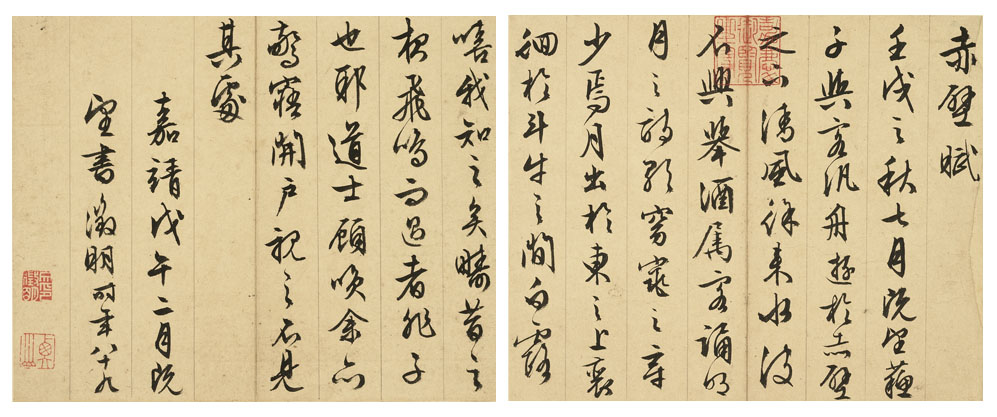 赤壁賦
壬戌之秋七月既望蘓
子與客汎舟遊於赤壁
之下清風徐來水波
不興舉酒属客誦明
月之詩歌窈窕之章
少焉月出於東之上裵
徊於斗牛之間白露
嘻我知之矣疇昔之
夜飛鳴而過者非子
也耶道士顧笑余亦
驚寤開戶視之不見
其處
嘉靖戊午二月既
望書徵明時年八十九